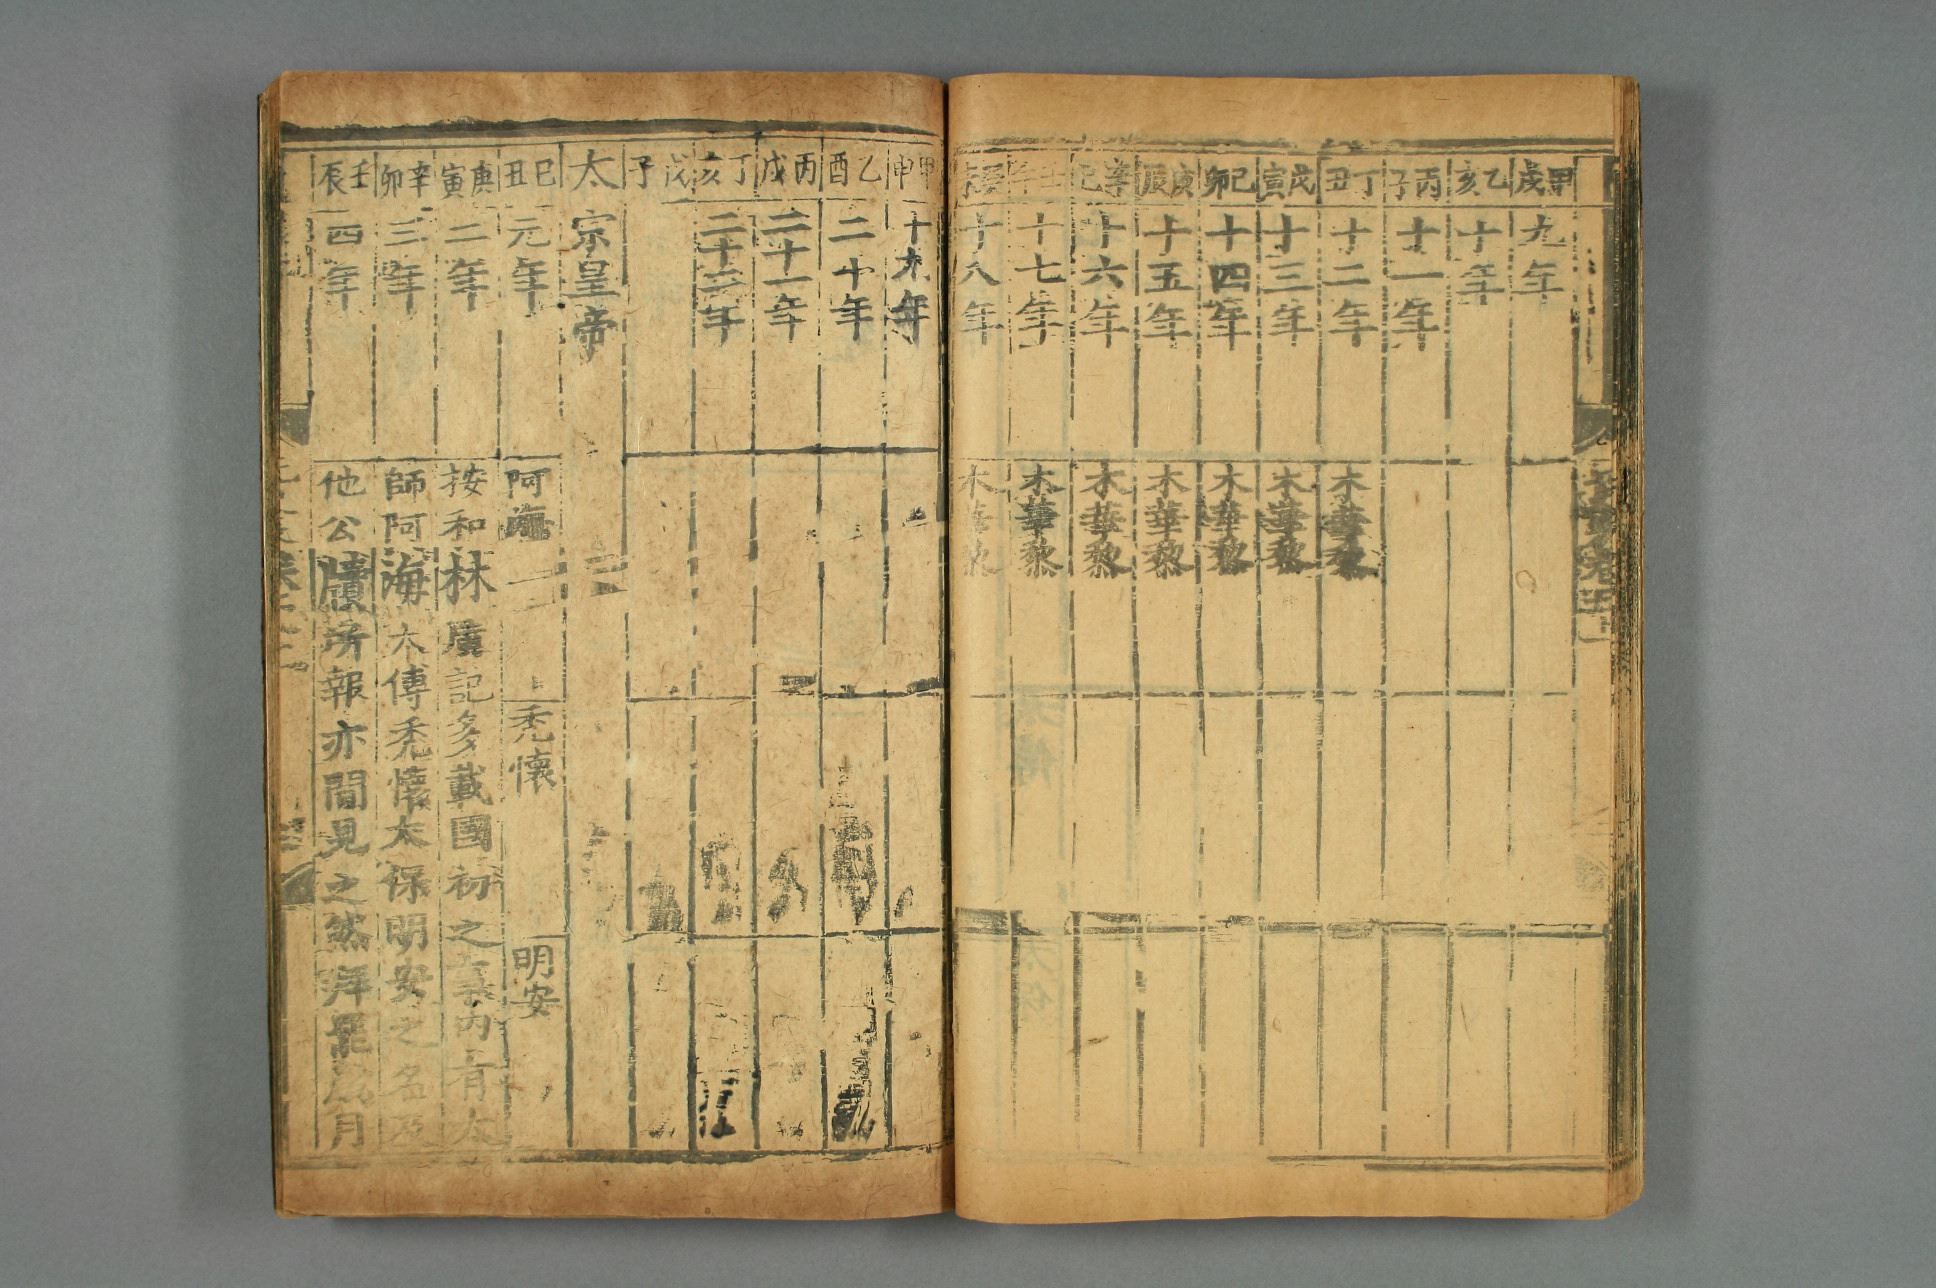 甲戌 九年
乙亥 十年
丙子 十一年
丁丑 十二年 木華黎
戊寅 十三年 木華黎
己卯 十四年 木華黎
庚辰 十五年 木華黎
辛巳 十六年 木華黎
壬午 十七年 木華黎
十八年 木華黎
甲申 十九年
乙酉 二十年
丙戌 二十一年
丁亥 二十二年
戊子
太宗皇帝
己丑 元年 阿海 禿懷 明安
庚寅 二年 按和林廣記多載國初之事內有太
辛卯 三年 師阿海太傅禿懷太保明安之名及
壬辰 四年 他公牘所報亦間見之然拜罷歲月